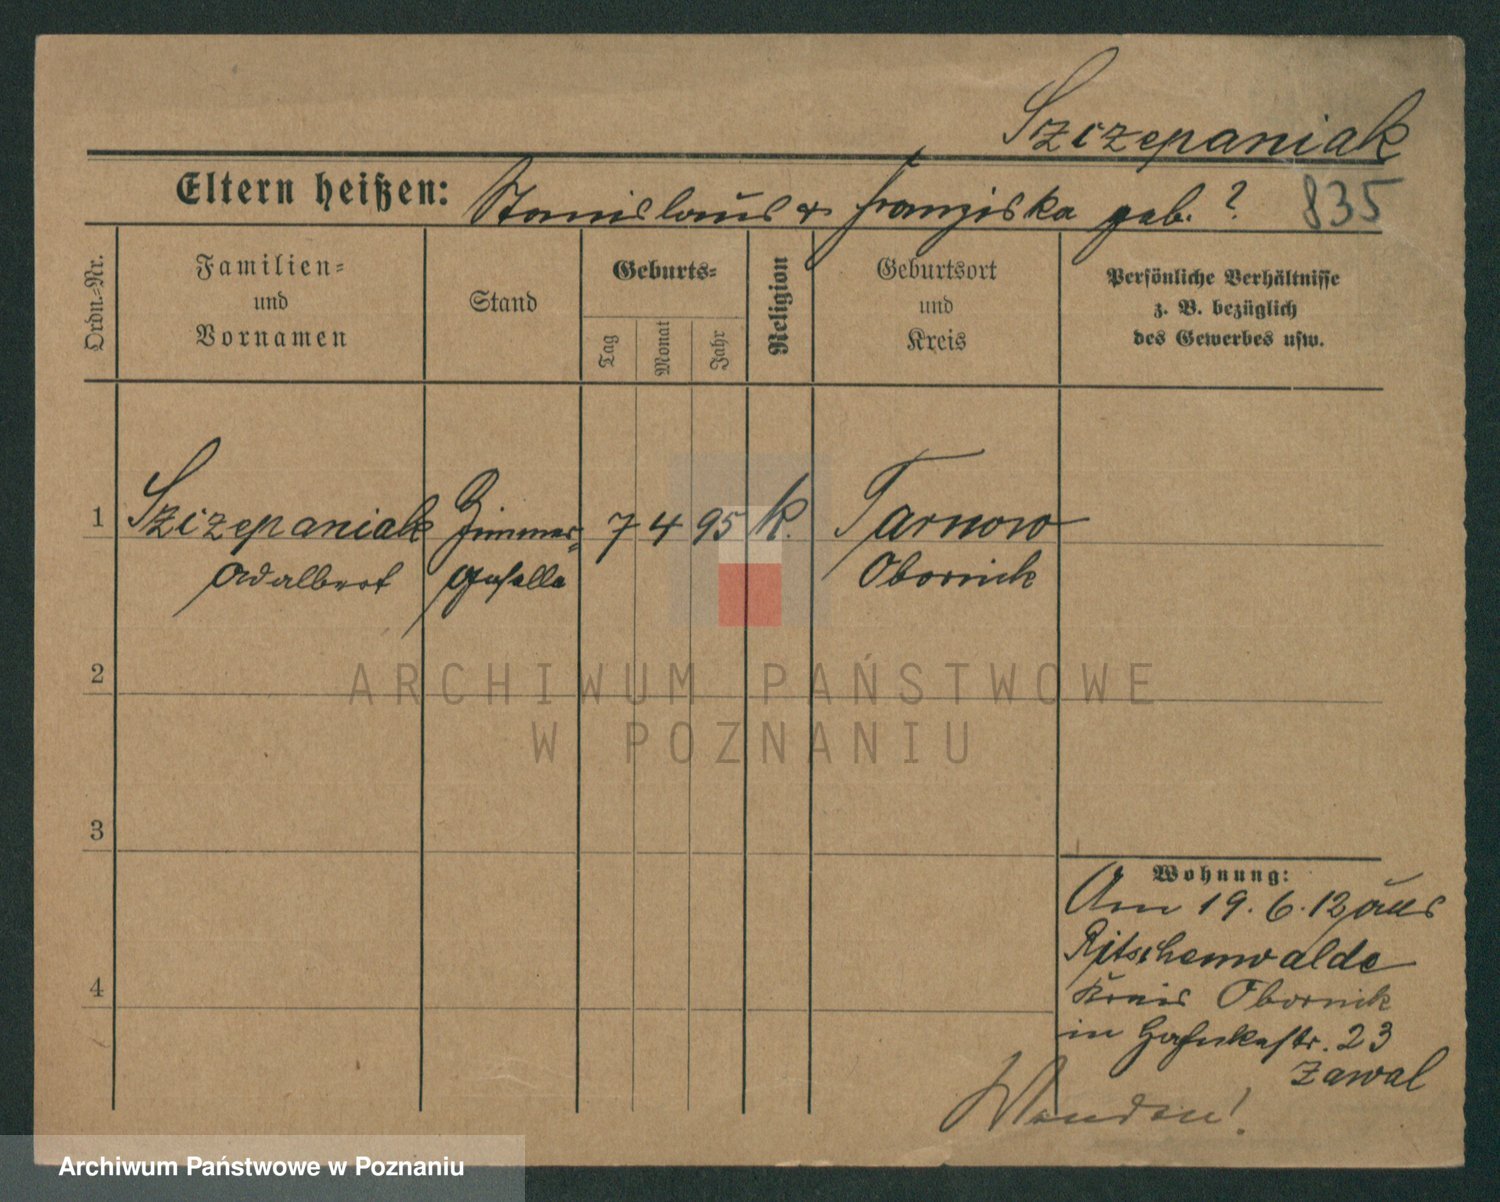 Szczepaniak
Eltern heißen: Stanislaus & Franziska geb. ?
835
Ordn.-Nr.
Familien-
und
Vornamen
Stand
Geburts-
Tag
Monat
Jahr
Religion
Geburtsort
und
Kreis
Persönliche Verhältnisse
z. B. bezüglich
des Gewerbes usw.
1 Szczepaniak Zimmer- 7 4 95 k. Tarnowo
Adalbert Geselle Obornick
2
ARCHIWUM PAŃSTWOWE
W POZNANIU
3
Wohnung:
Am 19. 6. 12 aus
Ritschenwalde
4
Kreis Obornik
in 23
Zawal
Wenden!
Archiwum Państwowe w Poznaniu